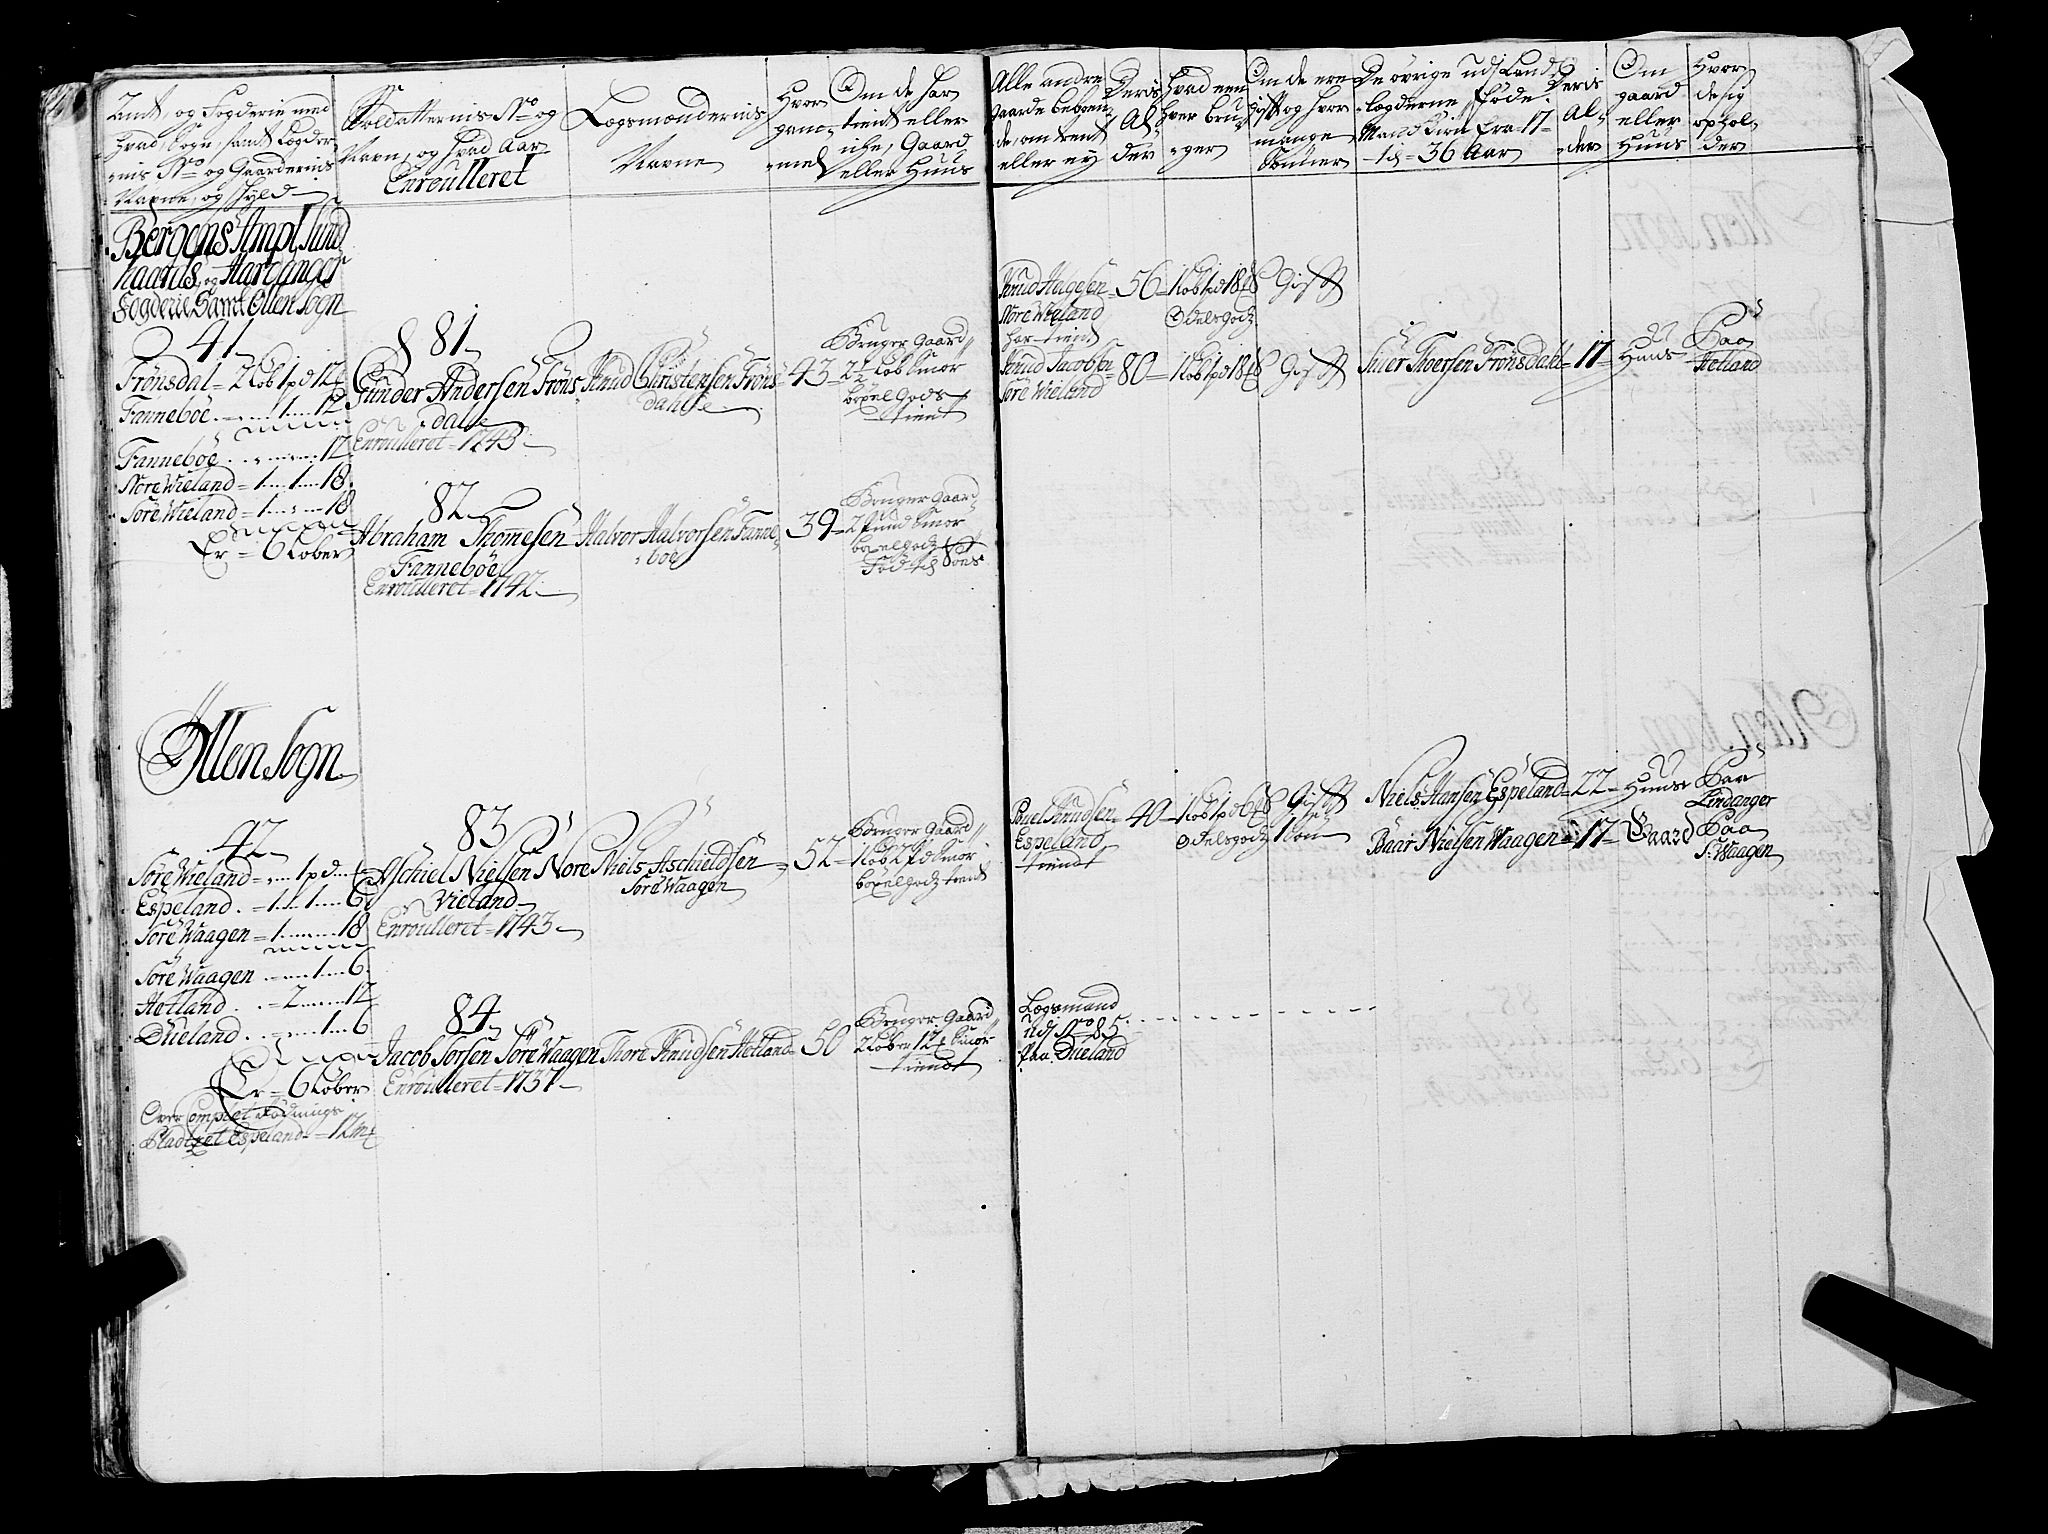 Amt, og Fogderie med
hvad Sogn, samt Lægder-
nis No og Gaardernis
Navne, og Skyld
Soldatternis No og
Navn, og hvad Aar
Enroulleret
Lægsmændernis
Navne
Hvor
gam-
mel
Om de har
tient eller
iche, Gaard
eller Huus
Alle andre
Gaarde beboen-
de, om tient
eller ey
Deris
Al-
der
Hvad een
hver bru-
ger
Om de ere
gift og hvor
mange
Sønner
De øvrige udj Land
Lægderne fføde
Mandskin fra 17
til 36 Aar
Deris
Al-
der
Om
gaard
eller
Huus
Hvor
de sig
ophol-
der
Bergens Ampt, Sund
haards og Hardanger
Fogderie Samt Ollen Sogn
41
Frönsdal = 2 Lob 1 pd 12
Fanneböe 1 12
Fanneböe 12
Nore Wieland = 1 1 18
Söre Wieland = 1 18
Er = 6 Lober
81
Gunder Andersen Fröns
dal
Enroulleret = 1743
Knud Christensen Fröns
dahl
43
Bruger Gaard
2½ Lob Smör
böxel Gods
tient
82
Abraham Thomesen
Fanneböe
Enroulleret = 1742
Halvor Halvorsen Fanne-
böe
39
Bruger Gaard
2 Pund Smör
böxelgodz
Knud Helgesen
Nore Wieland
har tient
56
1 Lob 1 pd 18
Odelsgodz
Gift
Knud Jacobsen
Söre Wieland
80
1 Lob 1 pd 18
Gift
Siver Thoersen Frönsdahl
17
Huus
Paa
Hetland
Ollen Sogn
42
Söre Wieland = 1 pd
Espeland = 1 1 6
Söre Waagen = 1 18
Söre Waagen 1 6
Hetland = 2 12
Düeland 1 6
Er = 6 Lober
Over Complet Rödnings
Pladzet Espeland = 12
83
Aschiel Nielsen Nore
Vieland
Enroulleret = 1743
Niels Aschieldsen
Söre Waagen
52
Bruger Gaard
1 Lob 2 Pd Smör
böxelgodz tient
84
Jacob Sörsen Söre Waagen
Enroulleret = 1737
Thore Knudsen Hetland
50
Bruger Gaard
2 Lob 12 Smör
tiendt
Poul Knudsen
Espeland
tiendt
40
1 Lob 1 pd 6
Odelsgodz
Gift
1 Søn
Niels Hansen Espeland
22
Huus
Paa
Lindanger
Baar Nielsen Waagen
17
Gaard
Paa
S: Waagen
Lægsmand
udj No 85
Paa Düeland